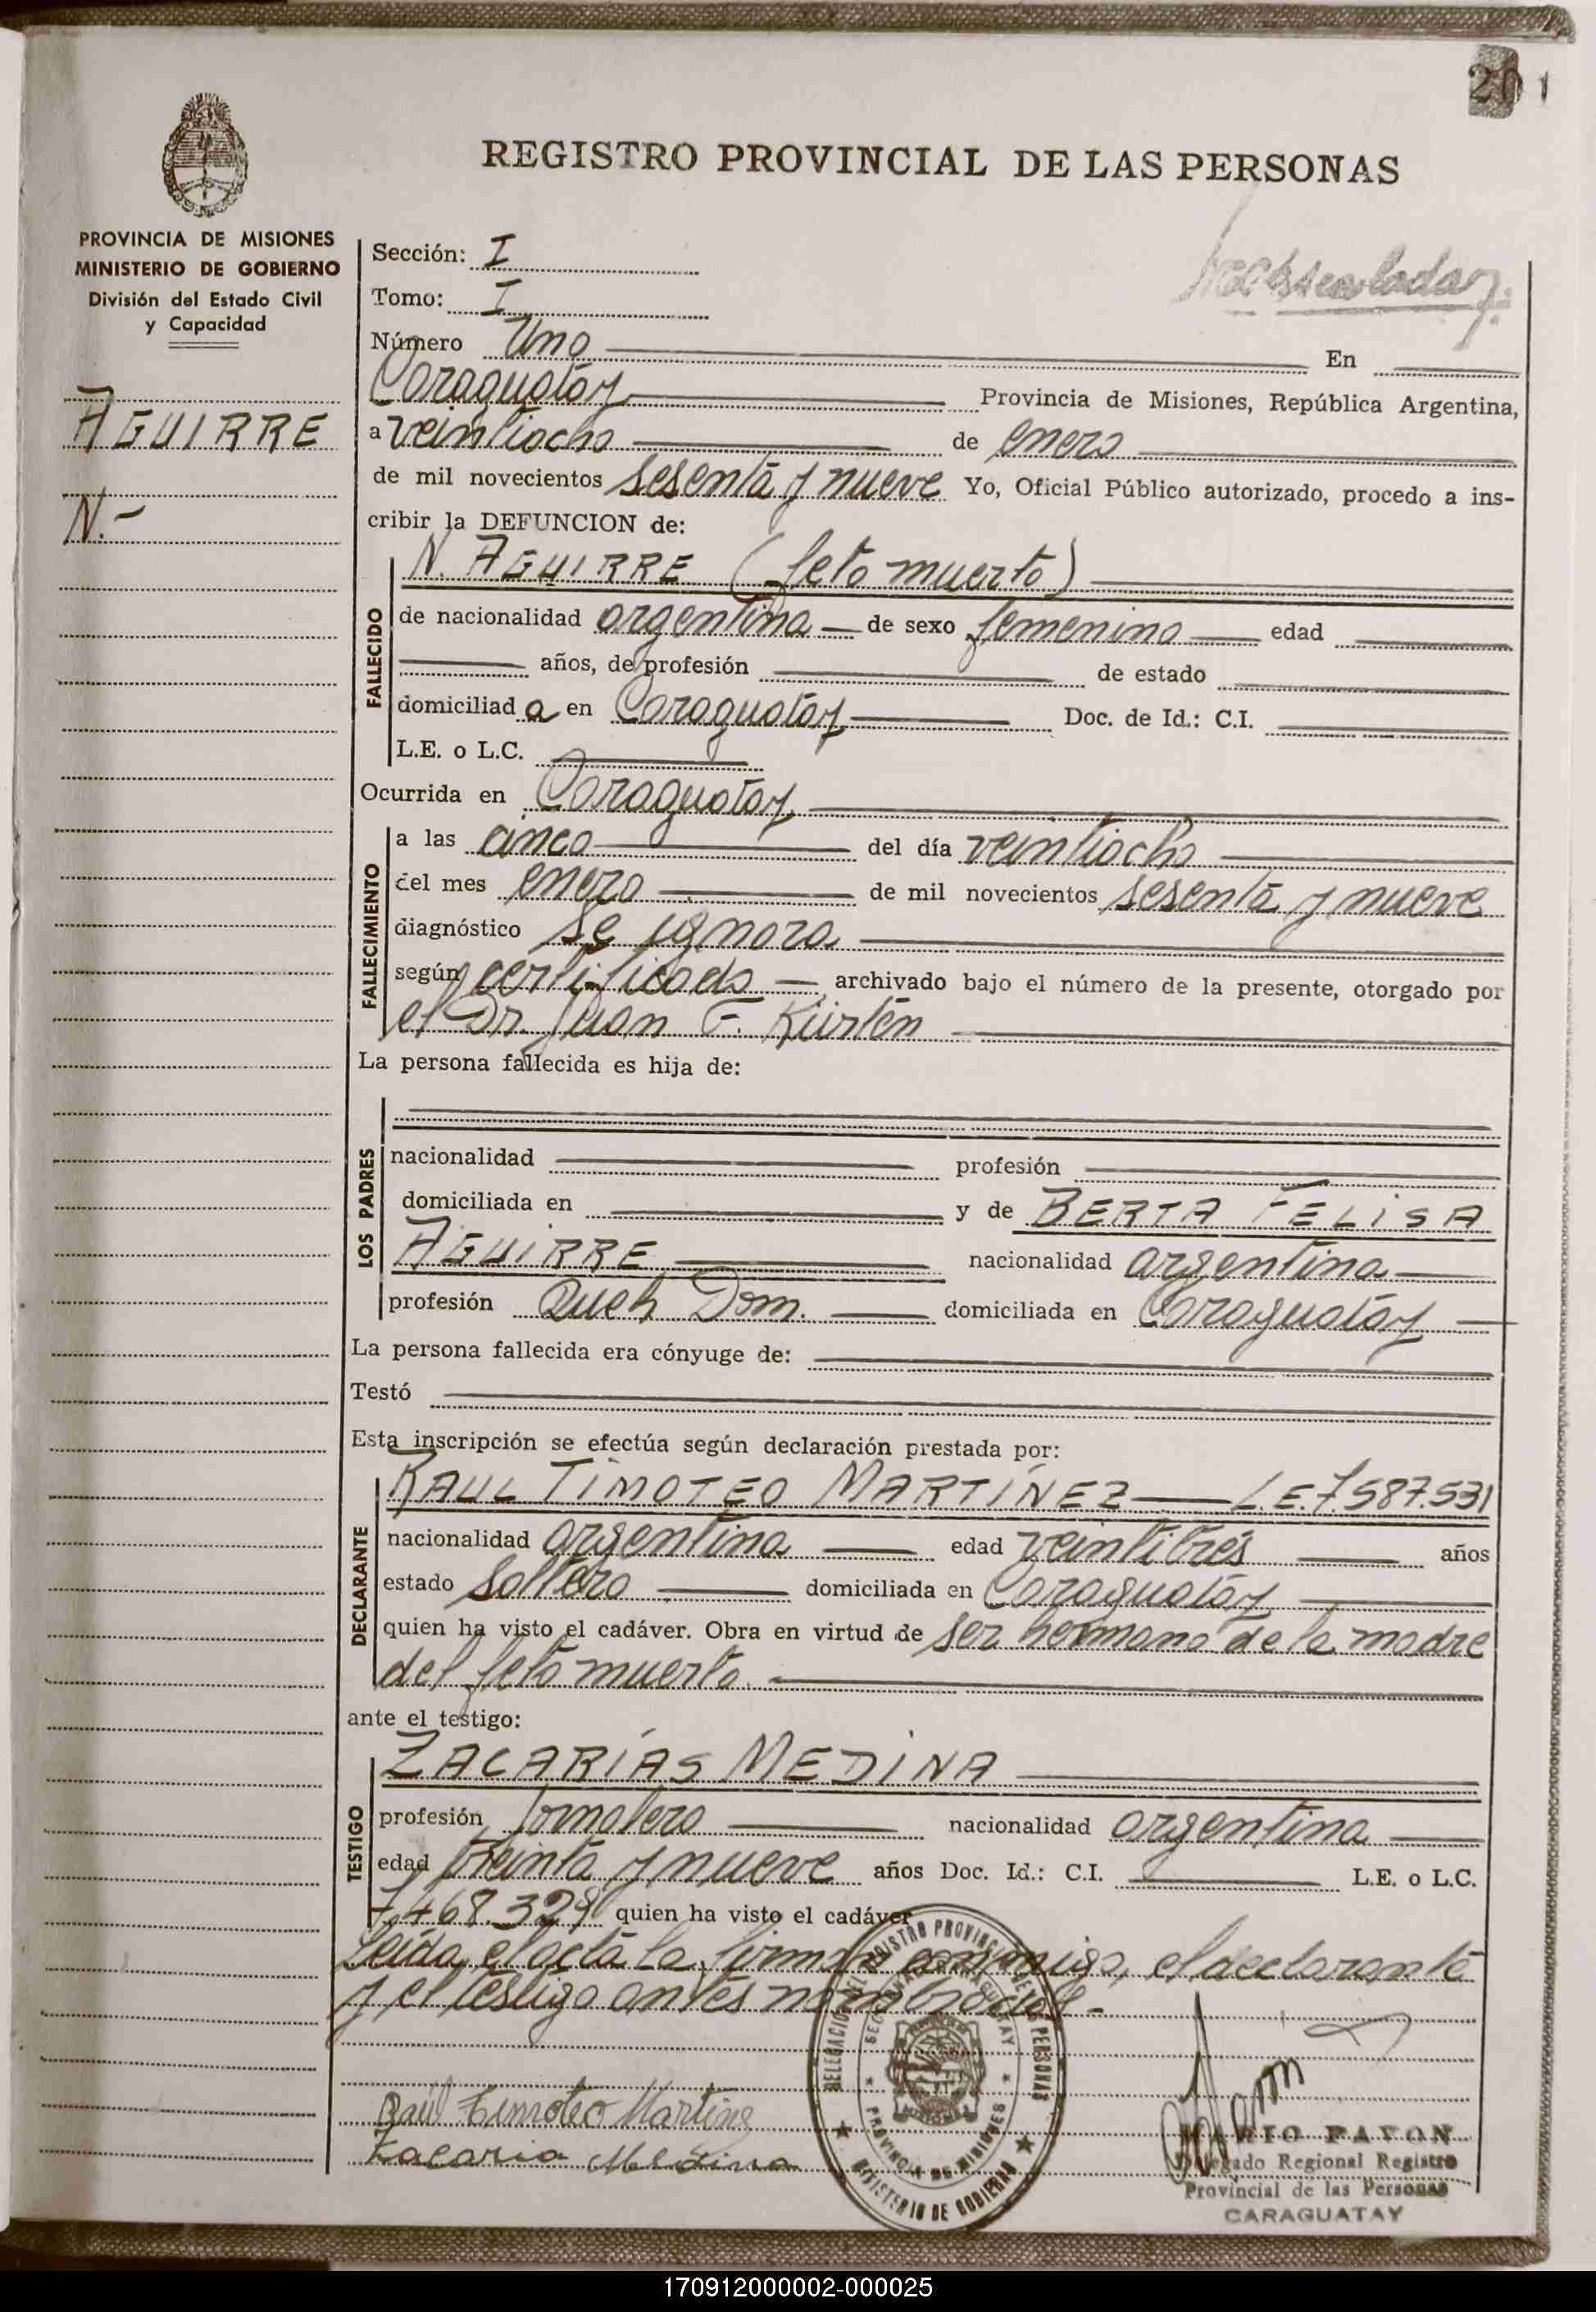 201
REGISTRO PROVINCIAL DE LAS PERSONAS
PROVINCIA DE MISIONES
MINISTERIO DE GOBIERNO
División del Estado Civil
y Capacidad
AGUIRRE
N.-
Sección: I
Tomo: I
Número Uno En
Caraguatay Provincia de Misiones, República Argentina,
a veintiocho de enero
de mil novecientos sesenta y nueve Yo, Oficial Público autorizado, procedo a ins-
cribir la DEFUNCION de:
N. AGUIRRE (feto muerto)
FALLECIDO
de nacionalidad argentina de sexo femenino edad
años, de profesión de estado
domiciliad a en Caraguatay Doc. de Id.: C.I.
L.E. o L.C.
Ocurrida en Caraguatay
FALLECIMIENTO
a las cinco del día veintiocho
del mes enero de mil novecientos sesenta y nueve
diagnóstico se ignora
según certificado archivado bajo el número de la presente, otorgado por
el Dr. Juan F. Kürten
La persona fallecida es hija de:
LOS PADRES
nacionalidad profesión
domiciliada en y de BERTA FELISA
AGUIRRE nacionalidad argentina
profesión Queh. Dom. domiciliada en Caraguatay
La persona fallecida era cónyuge de:
Testó
Esta inscripción se efectúa según declaración prestada por:
DECLARANTE
RAUL TIMOTEO MARTÍNEZ L.E. 7.587.531
nacionalidad argentina edad veintitrés años
estado soltero domiciliada en Caraguatay
quien ha visto el cadáver. Obra en virtud de ser hermano de la madre
del feto muerto.
ante el testigo:
TESTIGO
ZACARÍAS MEDINA
profesión Jornalero nacionalidad argentina
edad treinta y nueve años Doc. Id.: C.I. L.E. o L.C.
7.468.329 quien ha visto el cadáver
Leída el acta la firman conmigo, el declarante
y el testigo antes nombrados.-
DELEGACION DEL REGISTRO PROVINCIAL DE LAS PERSONAS
SECCIONAL CARAGUATAY
PROVINCIA DE MISIONES
MINISTERIO DE GOBIERNO
Raúl Timoteo Martínez
Zacaria Medina
MARIO PAVON
Delegado Regional Registro
Provincial de las Personas
CARAGUATAY
170912000002-000025